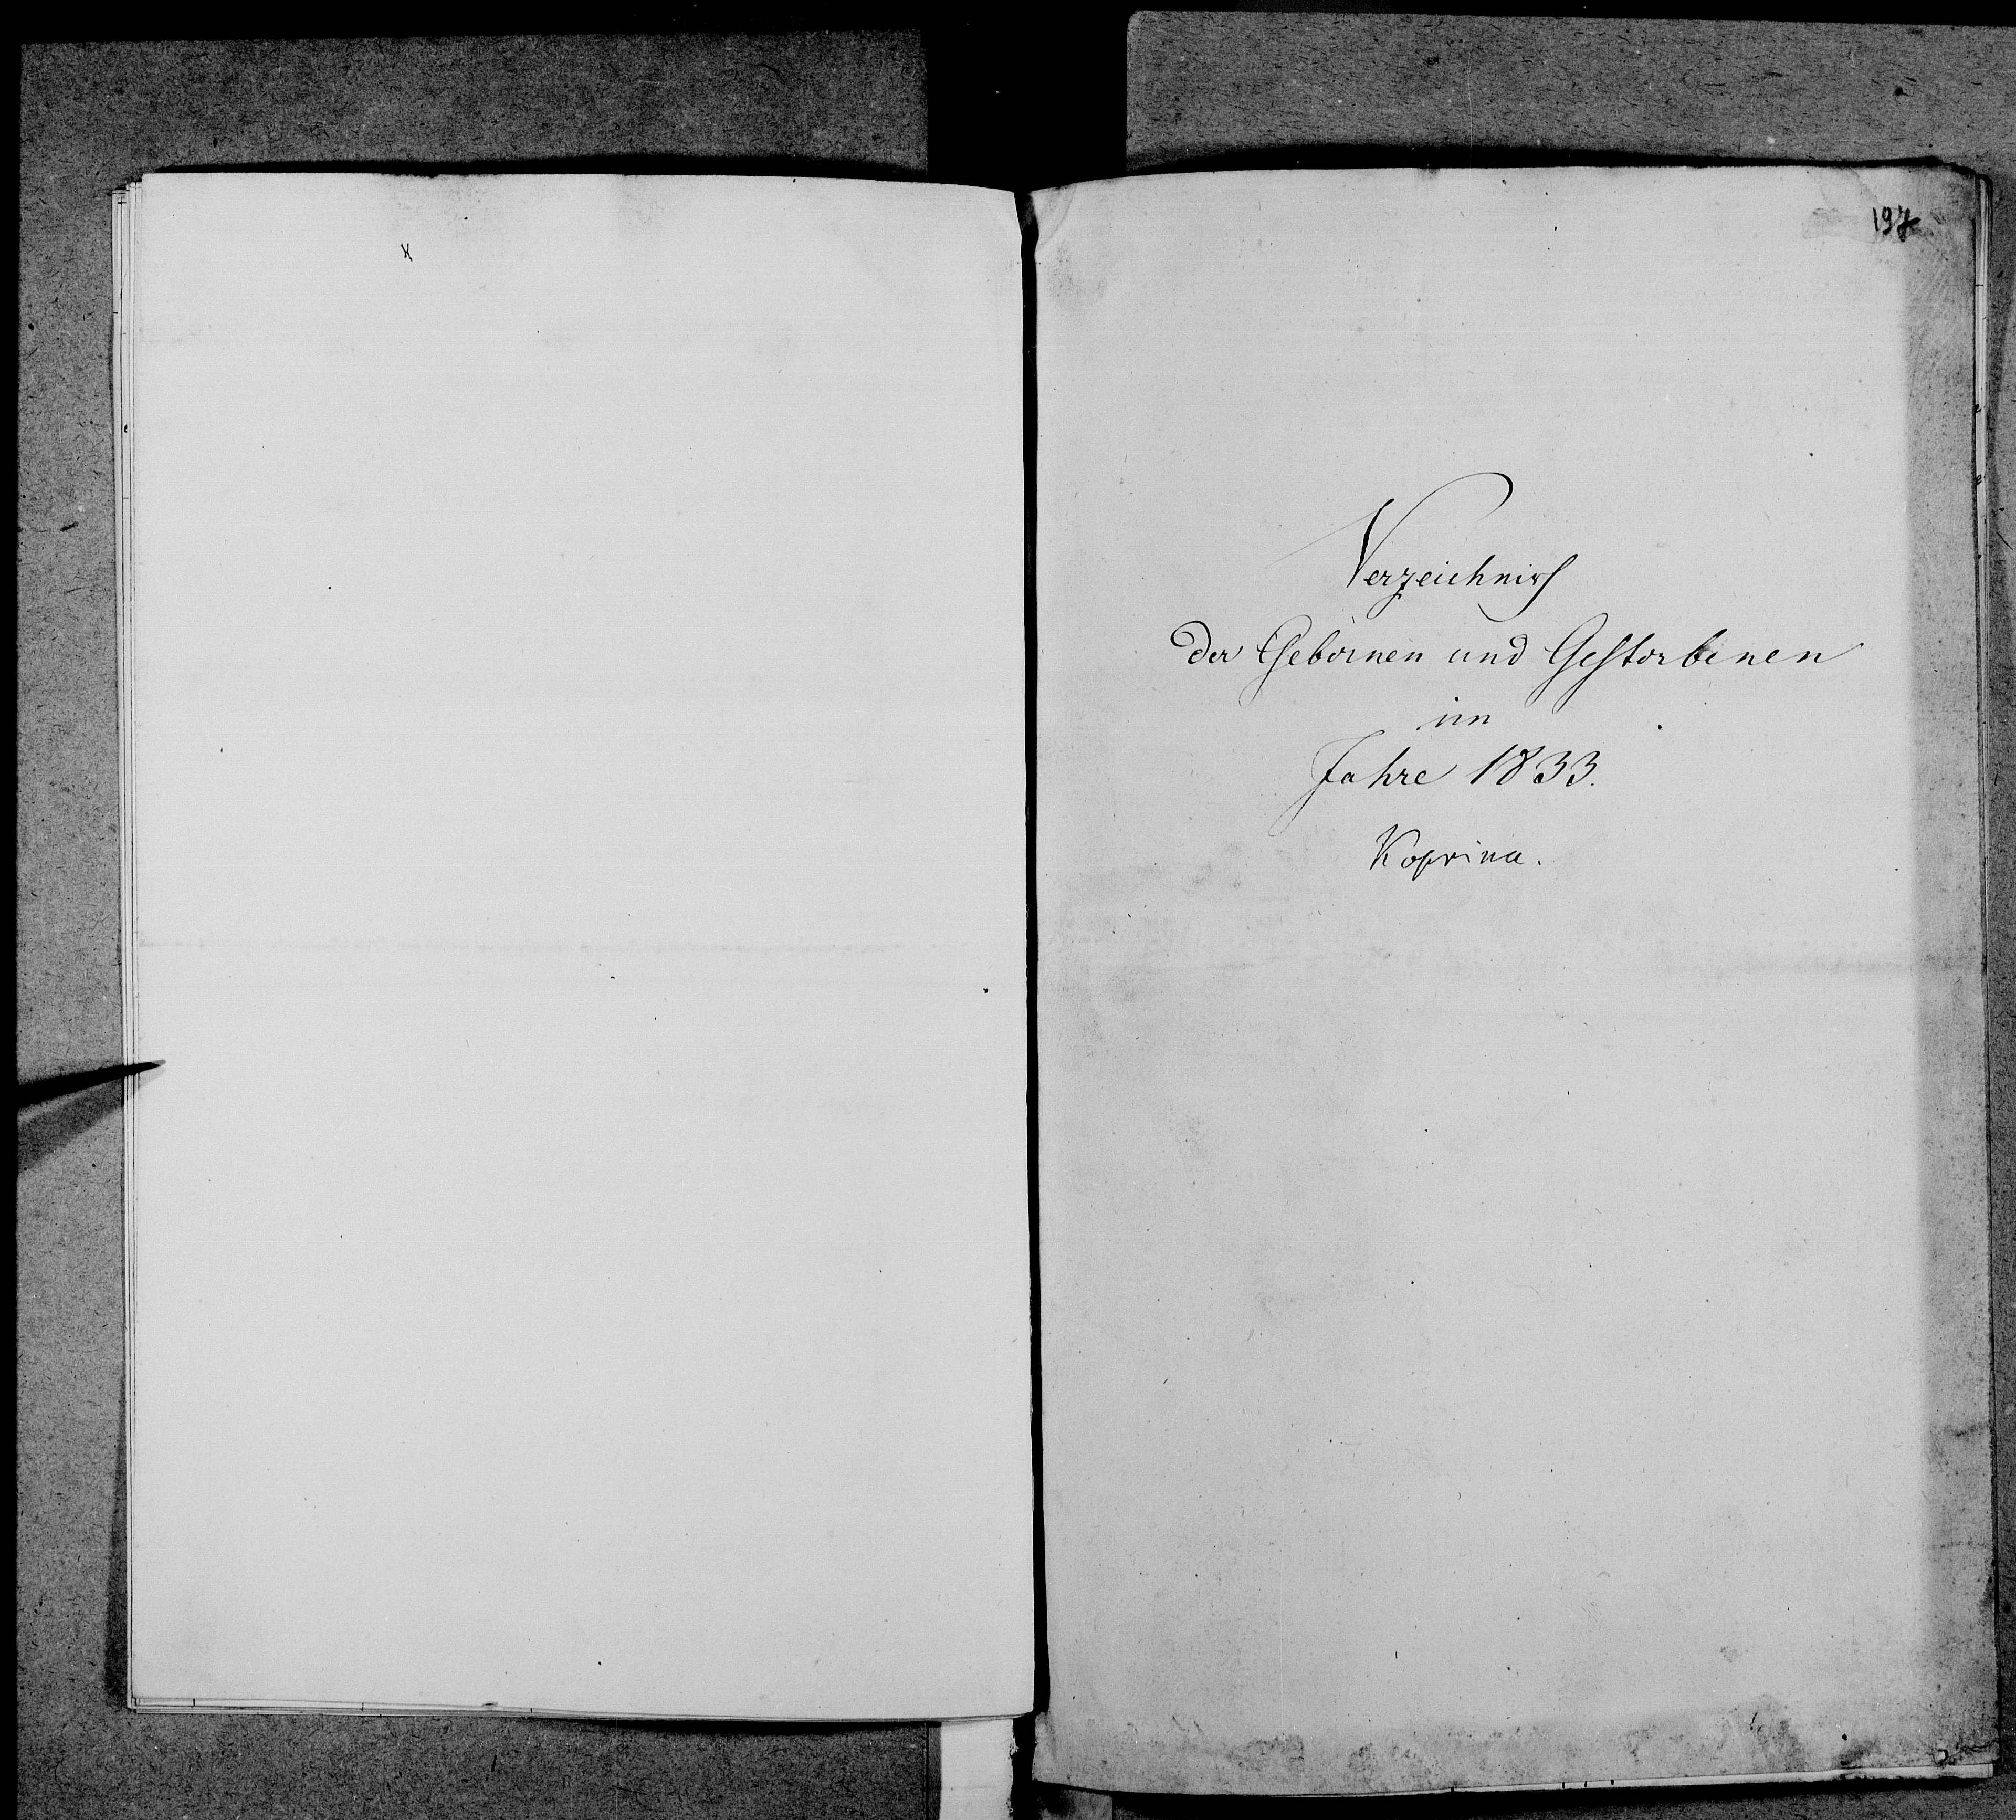 197
Verzeichniss
der Gebornen und Gestorbenen
im
Jahre 1833.
Koprina.